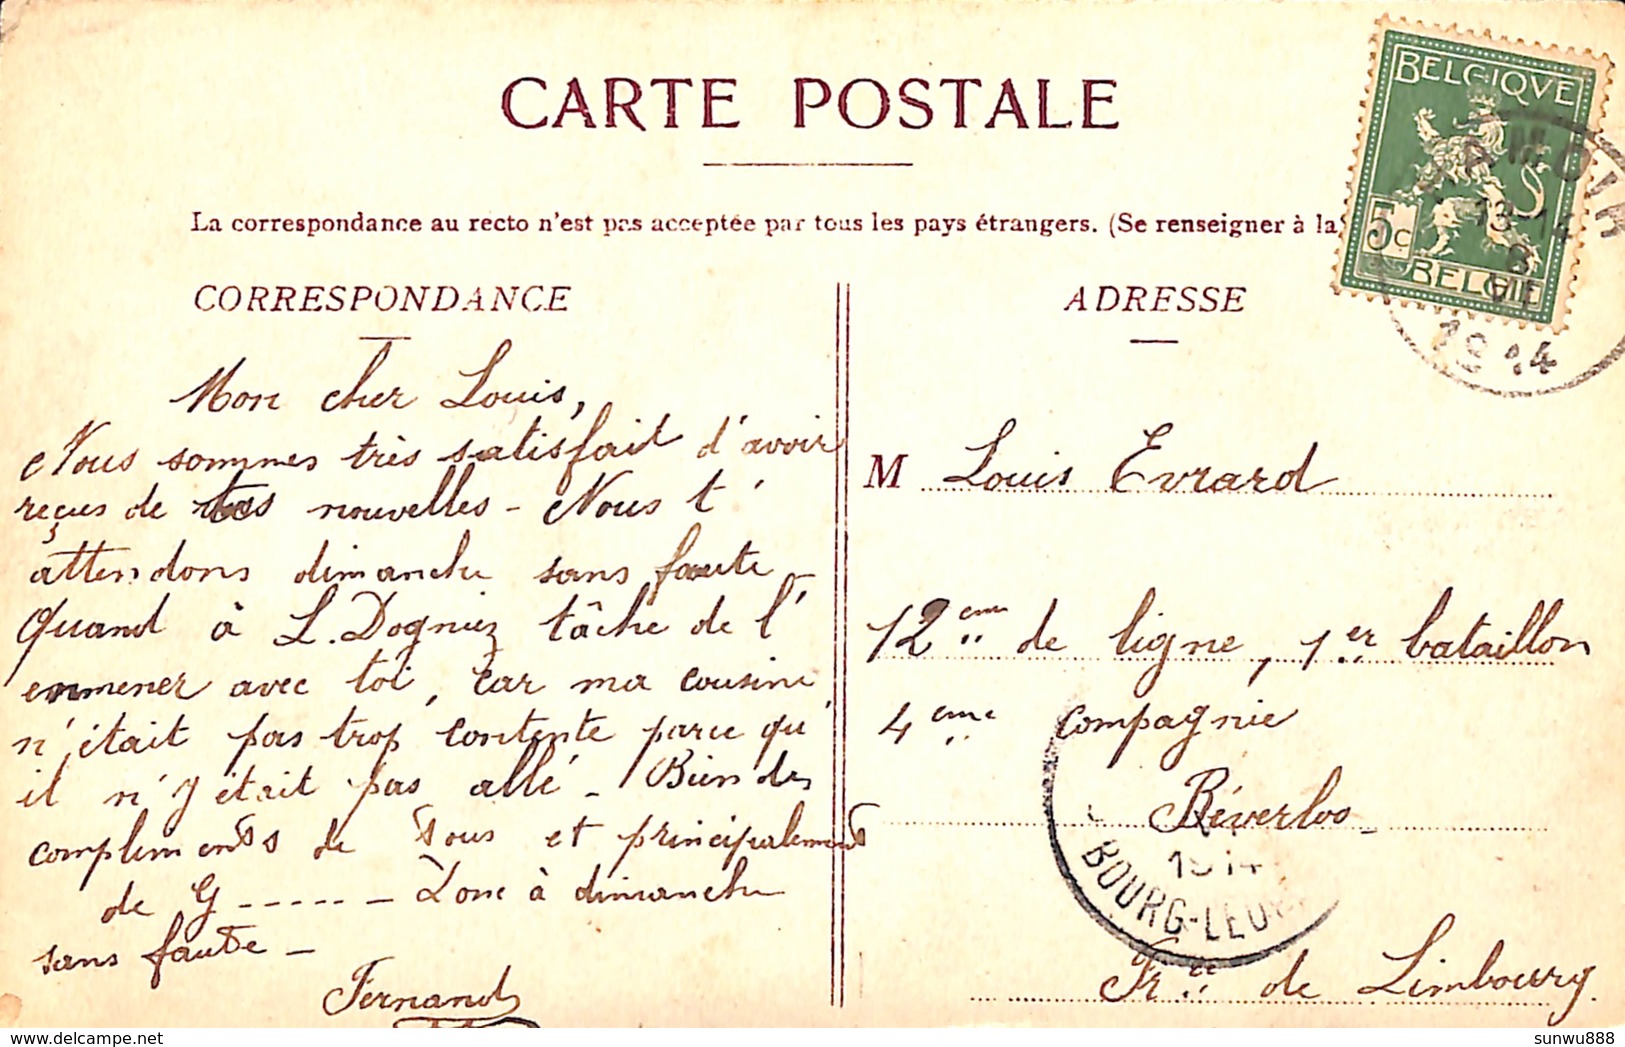 CARTE POSTALE
La correspondance au recto n'est pas acceptée par tous les pays étrangers. (Se renseigner à la
CORRESPONDANCE
Mon cher Louis,
Nous sommes très satisfait d'avoir
reçus de tes nouvelles - Nous t'
attendons dimanche sans faute -
Quand à L. Dogniez tâche de l'
emmener avec toi, car ma cousine
n'était pas trop contente parce qu'
il n'y était pas allé - Bien des
compliments de tous et principalement
de G ----- - Donc à dimanche
sans faute -
Fernand
ADRESSE
M Louis Evrard
12eme de ligne, 1er bataillon
4eme compagnie
Béverloo -
Prce de Limbourg
BELGIQVE
5c
BELGIE
13-14
1914
1914
BOURG-LEO
delcampe.net
sunwu888